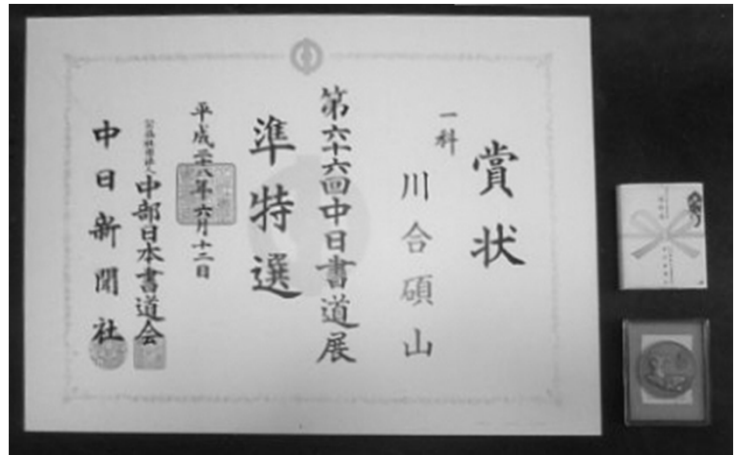 賞状
一科
川合碩山
第六十六回中日書道展
準特選
平成二十八年六月十二日
公益社団法人中部日本書道会
中日新聞社